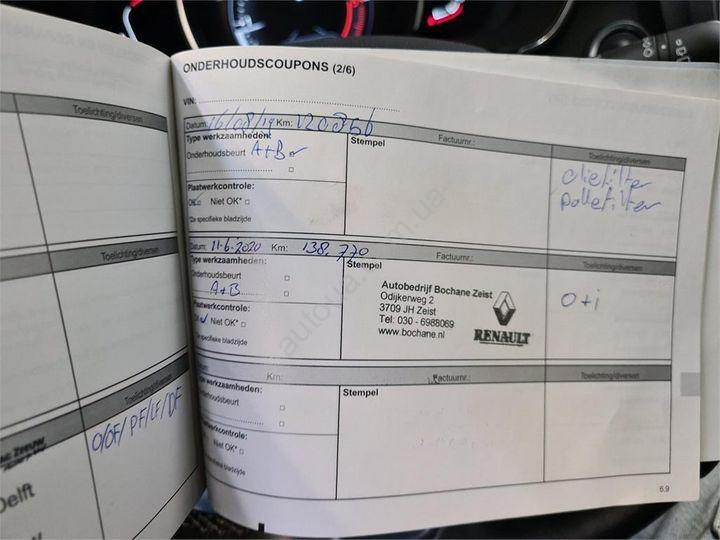 Toelichting/diversen
Toelichting/diversen
Toelichting/diversen
O/OF/PF/LF/DF
Delft
ONDERHOUDSCOUPONS (2/6)
VIN:
Datum: 16/08/19 Km: 120356
Type werkzaamheden:
Onderhoudsbeurt A+B
Plaatwerkcontrole:
OK Niet OK*
*Zie specifieke bladzijde
Stempel
Factuurnr.:
Toelichting/diversen
oliefilter
pollefilter
Datum: 11-6-2020 Km: 138.770
Type werkzaamheden:
Onderhoudsbeurt
A+B
Plaatwerkcontrole:
OK Niet OK*
specifieke bladzijde
Factuurnr.:
Stempel
Autobedrijf Bochane Zeist
Odijkerweg 2
3709 JH Zeist
Tel: 030 - 6988069
www.bochane.nl
RENAULT
Toelichting/diversen
O+i
Datum Km:
Type werkzaamheden:
Onderhoudsbeurt
Plaatwerkcontrole:
Niet OK*
specifieke bladzijde
Factuurnr.:
Stempel
Toelichting/diversen
6.9